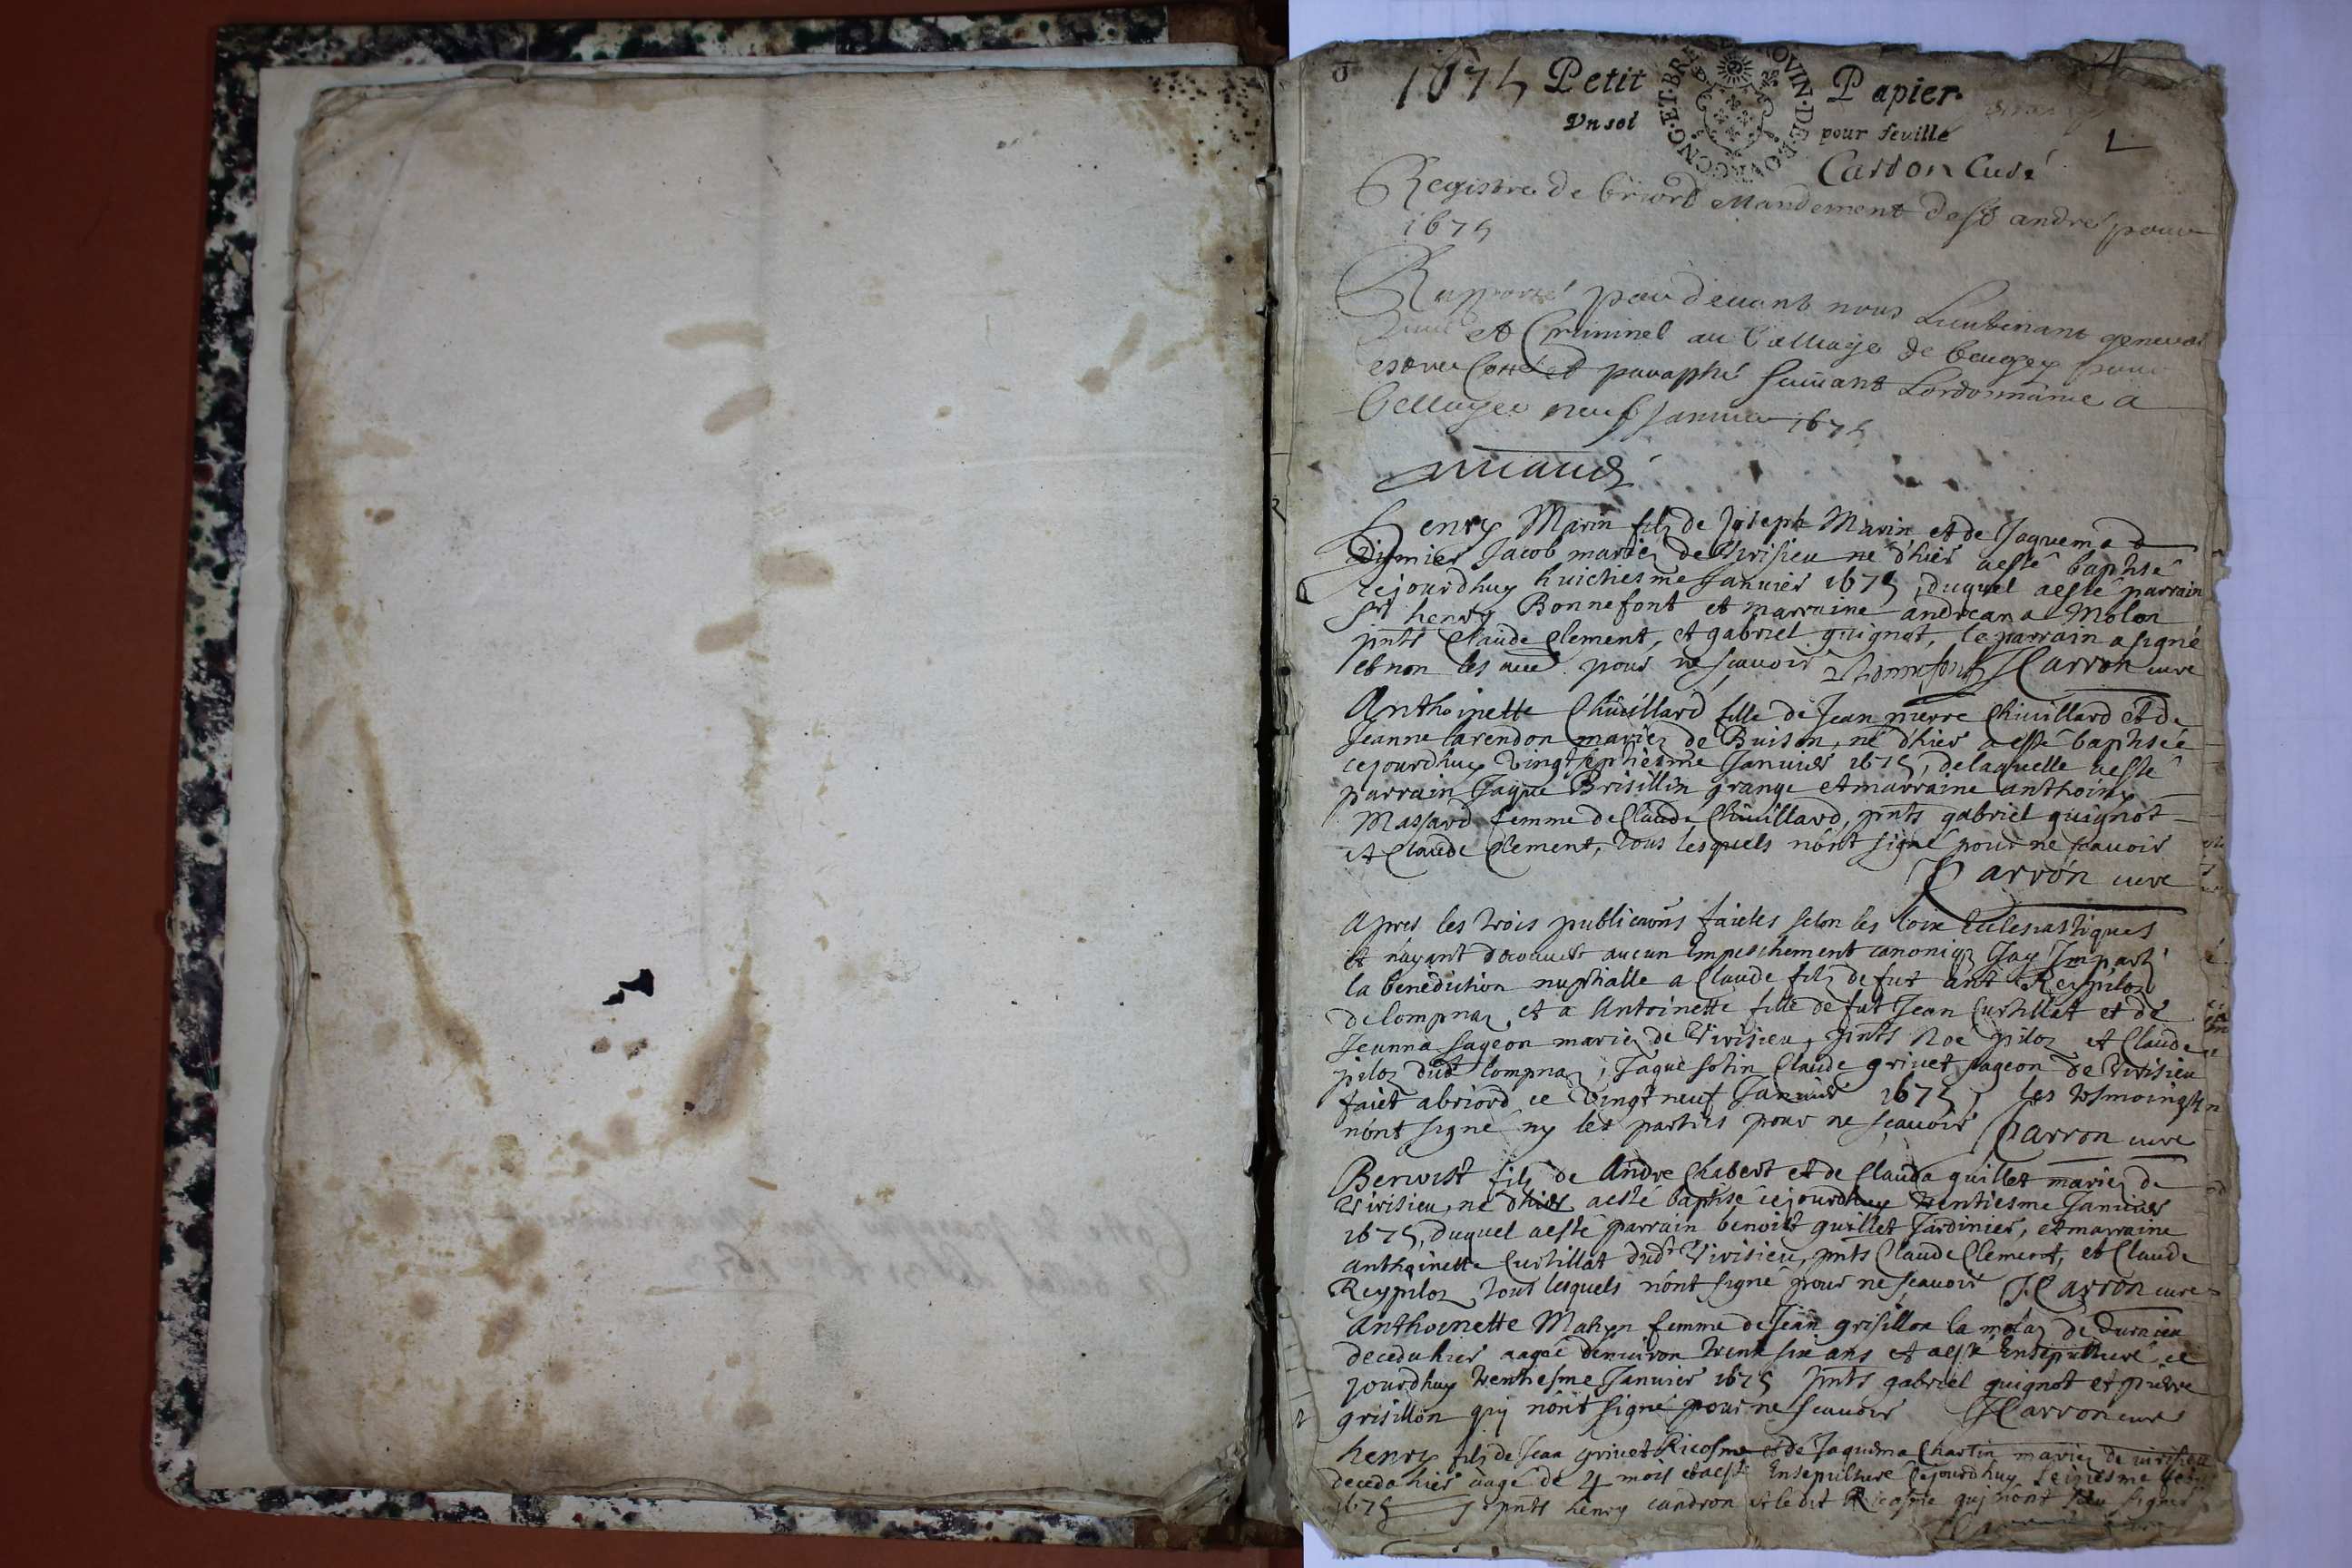 1675 Petit Papier
Vn sol pour feuille
GENG·ET·BRE PROVIN·DE·BOVRG
Carron Curé
Registre de briord Mandement de st andré pour
1675
par deuant nous Lieutenant general
Ciuil et Criminel au balliage de beugey
Cotté et paraphé suiuant Lordonnance a
belley ce neuf Januier 1675
Henry Marin filz de Joseph Marin et de Jaquema
Jacob mariez de Virisieu ne d'hier aesté baptisé
cejourdhuy huictiesme Januier 1675, duquel aesté parrain
Sr henry Bonnefont et marraine andreana Molon
pnts Claude Clement, et gabriel guignot, le parrain a signé
et non les au pour ne scauoir Bonnefont JCarron cure
Anthoinette Chuillard fille de Jean pierre Chuillard et de
Jeanne larendon mariez de Buison, né d'hier a esté baptisée
cejourdhuy vingtseptiesme Januier 1675, delaquelle aesté
parrain Jaque Brisillin grange et marraine anthoin
Massard femme de Claude Chuillard, pnts gabriel guignot
et Claude Clement, tous lesquels n'ont signé pour ne scauoir
Carron cure
Apres les trois publicaons faictes selon les loix Eclesiastiques
et n'ayant decouuert aucun Empeschement canoniq Jay Imparti
la benediction nuptialle a Claude filz de fut ant Reypiloz
de lompnaz, et a Antoinette fille de fut Jean Curtillat et de
Jeanna sageon mariez de Virisieu, pnts Noe piloz et Claude
piloz dudt lompnaz, Jaque sotin Claude griuet sageon de Virisieu
faict a briord ce vingt neuf Januier 1675, les tesmoings
n'ont signé ny les parties pour ne scauoir Carron cure
Benoist filz de Andre Chabert et de Clauda guillet mariez de
Virisieu, né d'hier aesté baptisé cejourdhuy trentiesme Januier
1675, duquel aesté parrain benoist guillet Jardinier, et marraine
anthoinette Curtillat dudt Virisieu, pnts Claude Clement, et Claude
Reypiloz, tous lesquels n'ont signé pour ne scauoir JCarron cure
Anthoinette Mahyn femme de Jean grisillon la motaz de
decedu hier aagée denuiron trente six ans et aesté Ensepulturé ce
jourdhuy trentiesme Januier 1675 pnts gabriel guignot et pierre
grisillon qui n'ont signé pour ne scauoir JCarron cure
henry filz de Jean griuet Ricosme et de Jaquema Chartin mariez de virisieu
decedu hier aagé de 4 mois et aesté Ensepulturé cejourdhuy
1675 pnts henry candron et ledit Ricosme qui n'ont sceu signer